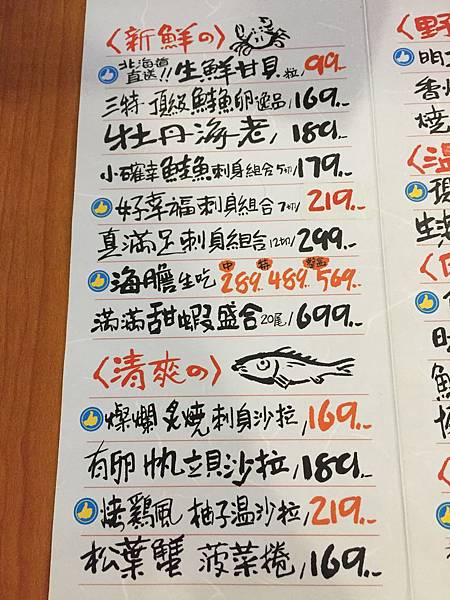 〈新鮮の〉
北海道直送!! 生鮮甘貝 粒/99.-
三特頂級鮭魚卵逸品/169.-
牡丹海老/189.-
小確幸鮭魚刺身組合5切/179.-
好幸福刺身組合7切/219.-
真滿足刺身組合12切/299.-
海膽生吃 中289. 特489. 569.-
滿滿甜蝦盛合20尾/699.-
〈清爽の〉
燦爛炙燒刺身沙拉/169.-
有卵帆立貝沙拉/189.-
烤鷄風柚子温沙拉/219.-
松葉蟹菠菜捲/169.-
〈野
明
香
燒
〈溫
現
生